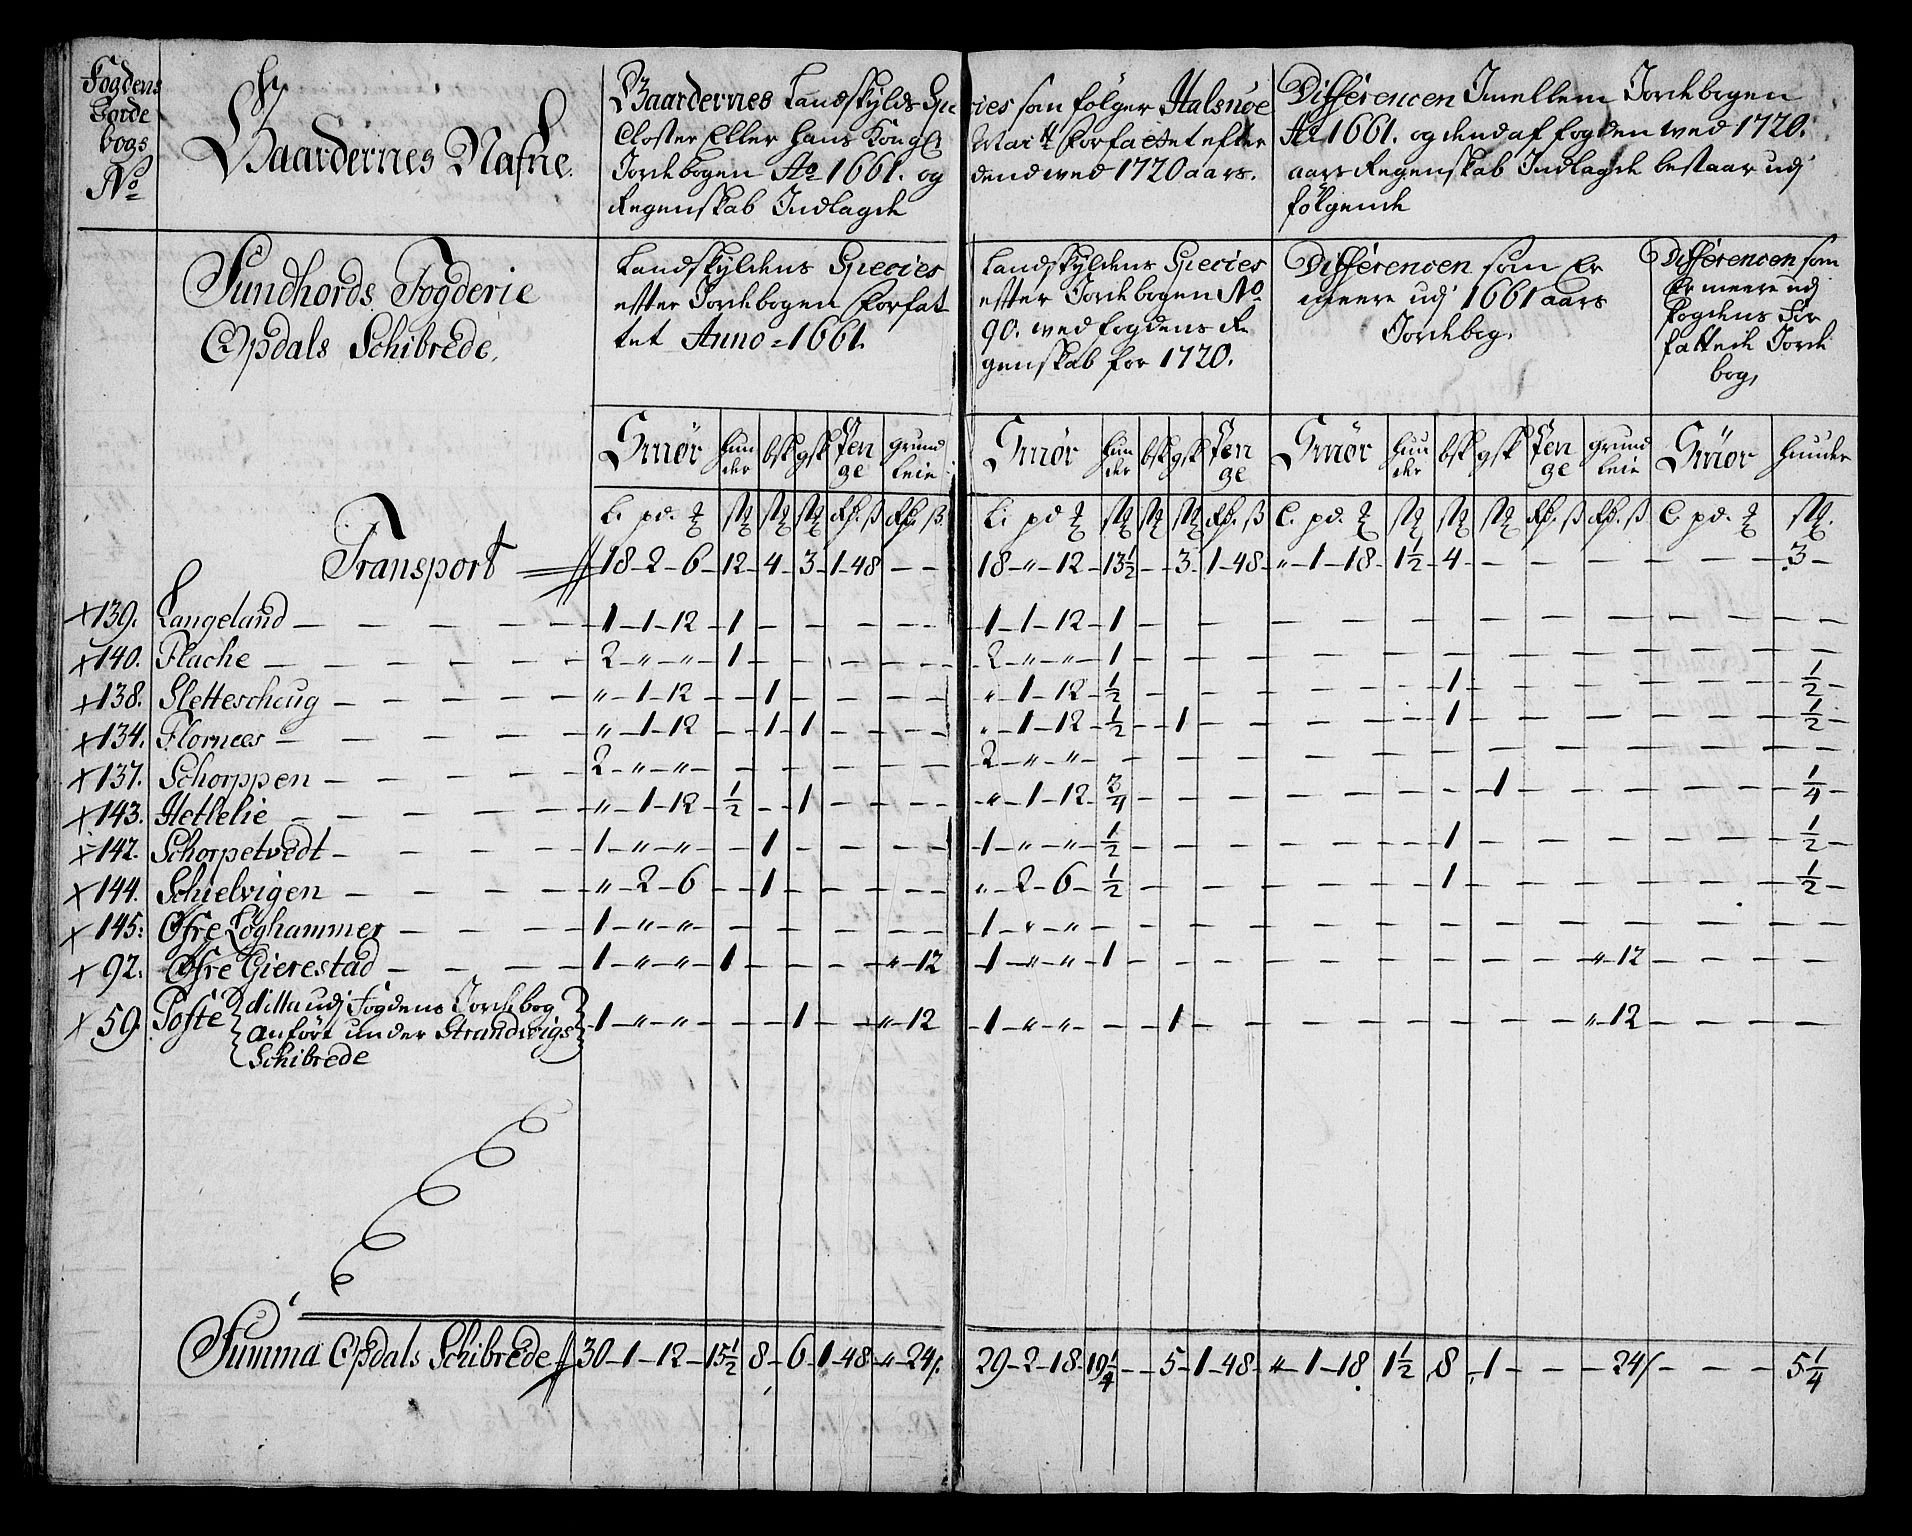 Fogdens
Jorde
bogs
No
Gaardernes Nafne.
Gaardernes Landskylds Spe
Closter Eller Hans Kongl
Jordebogen Ao 1661. og
Regenskab Indlagde
cies som følger Halsnøe
Maitt Forfattet efter
dend wed 1720 aars.
Differencen Imellem Jordebogen
Ao 1661. og dend af fogden wed 1720.
aars Regenskab Indlagde bestaar udj
følgende
Sundhords Fogderie
Opdals Schibrede.
Landskyldens Species
efter Jordebogen Forfat
tet Anno = 1661.
Landskyldens Species
efter Jordebogen No
90. wed fogdens Re
genskab for 1720.
Differencen som Er
meere udj 1661 aars
Jordebog.
Differencen som
Er meere udj
Fogdens For
fattede Jorde
bog,
Smør hunder bsk gsk Penge grund leie Smør hunder bsk gsk Penge Smør hunder bsk gsk Penge grund leie Smør hunder
L. pd. ℔ stk stk stk Rd. ß Rd. ß L. pd ℔ stk stk stk Rd. ß L. pd. ℔ stk stk stk Rd. ß Rd. ß L. pd. ℔ stk.
Transport 18 - 2 - 6 - 12 - 4 - 3 - 1 - 48 - - 18 - " - 12 - 13½ - - 3 - 1 - 48 - " - 1 - 18 - 1½ - 4 - - - - - - - - 3 -
+ 139. Langeland - 1 - 1 - 12 - 1 - - - - - 1 - 1 - 12 - 1 - - - - - - - - - - - - -
+ 140. Flache - 2 - " - " - 1 - - - - - 2 - " - " - 1 - - - - - - - - - - - - -
+ 138. Sletteschoug - " - 1 - 12 - - 1 - - - - " - 1 - 12 - ½ - - - - - - - - 1 - - - - - - - ½ -
+ 134. Flornees - " - 1 - 12 - - 1 - 1 - - - " - 1 - 12 - ½ - - 1 - - - - - - 1 - - - - - - - ½ -
+ 137. Schorppen - 2 - " - " - - - - - - 2 - " - " - - - - - - - - - - - - -
+ 143. Hetlelie - " - 1 - 12 - ½ - - 1 - - - " - 1 - 12 - ¾ - - - - - - - - - 1 - - - - - - ¼ -
+ 142. Schorpetvedt - 1 - " - " - - 1 - - - - 1 - " - " - ½ - - - - - - - - 1 - - - - - - - ½ -
+ 144. Schielvigen - " - 2 - 6 - - 1 - - - - " - 2 - 6 - ½ - - - - - - - - 1 - - - - - - - ½ -
+ 145: Øfre Løghammer - 1 - " - " - - - - - - 1 - " - " - - - - - - - - - - - - -
+ 92. Øfre Gierestad - 1 - " - " - 1 - - - - " - 12 - 1 - " - " - 1 - - - - - - - - - - - " - 12 - - - -
+ 59. Tofte { ditto udj Fogdens Jordebog
anført under Strandwigs
Schibrede } 1 - " - " - - - 1 - - " - 12 - 1 - " - " - - - 1 - - - - - - - - - - " - 12 - - - -
Summa Opdals Schibrede 30 - 1 - 12 - 15½ - 8 - 6 - 1 - 48 - " - 24/. 29 - 2 - 18 - 19¼ - - 5 - 1 - 48 - " - 1 - 18 1½ 8 - 1 - - - 24/ - - - 5¼